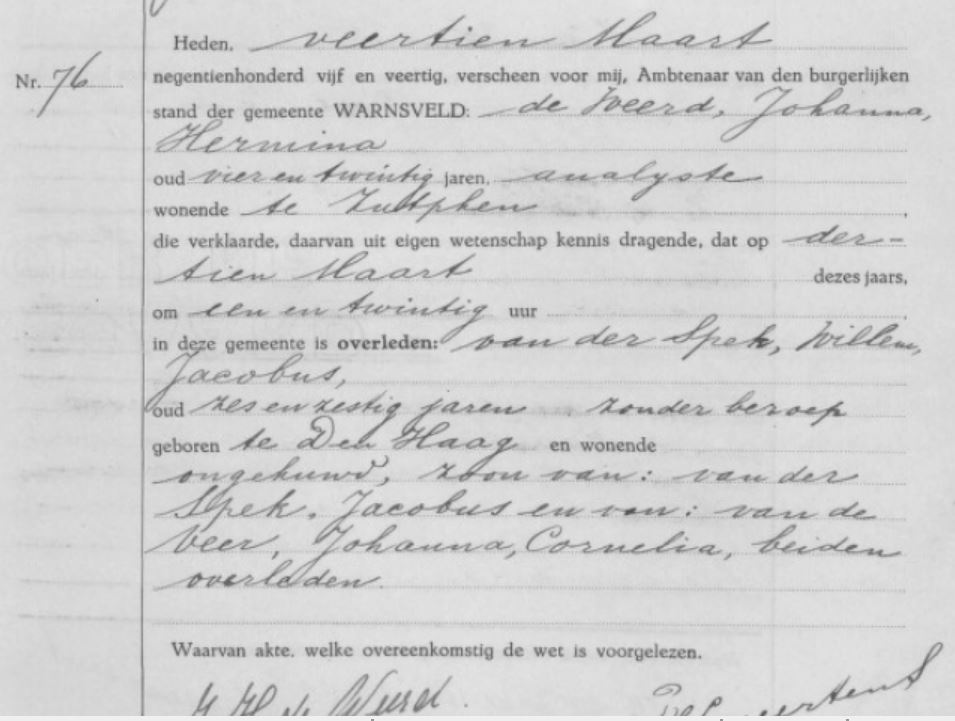 Heden, veertien Maart
Nr. 76
negentienhonderd vijf en veertig, verscheen voor mij, Ambtenaar van den burgerlijken
stand der gemeente WARNSVELD: de Weerd, Johanna,
Hermina
oud vier en twintig jaren, analyste
wonende te Zutphen,
die verklaarde, daarvan uit eigen wetenschap kennis dragende, dat op der-
tien Maart dezes jaars,
om een en twintig uur
in deze gemeente is overleden: van der Spek, Willem,
Jacobus,
oud zes en zestig jaren zonder beroep
geboren te Den Haag en wonende
ongehuwd, zoon van: van der
Spek, Jacobus en van: van de
Veer, Johanna, Cornelia, beiden
overleden.
Waarvan akte, welke overeenkomstig de wet is voorgelezen.
J. H. de Weerd.